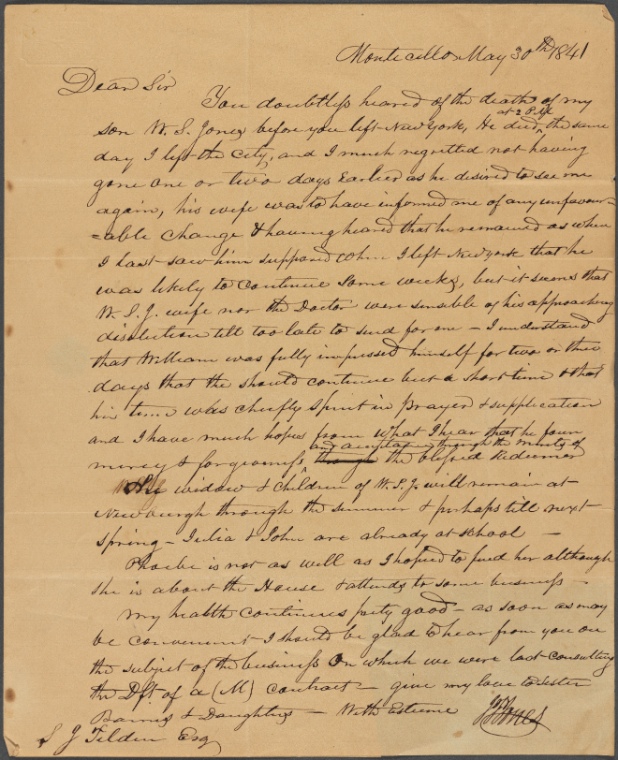 Monticello May 30th 1841
Dear Sir
You doubtless heared of the death of my
son W. S. Jones before you left New York, He died at 2 P.M. the same
day I left the City, and I much regretted not having
gone one or two days Earlier as he desired to see me
again, his wife was to have informed me of any unfavour=
=able Change & having heared that he remained as when
I last saw him supposed When I left New York that he
was likely to continue some weeks, but it seems that
W. S. J. wife nor the Doctor were sensible of his approaching
disolution till too late to send for me – I understand
that William was fully impressed himself for two or three
days that he should continue but a short time & that
his time was chiefly spent in Prayer & supplication
and I have much hopes from what I hear that he found
mercy & forgiveness and acceptance through the merits of the blessed Redeemer
widow & Children of W. S. J. will remain at
Newburgh through the summer & perhaps till next
spring – Julia & John are already at school –
Phoebe is not as well as I hoped to find her although
she is about the House & attends to some business –
my health continues prety good – as soon as may
be convenient I should be glad to hear from you on
the subject of the business on which we were last consulting
the Dft. of a (M) contract – give my love to sister
Barnes & Daughters – With Esteem
Jones
S J Tilden Esq